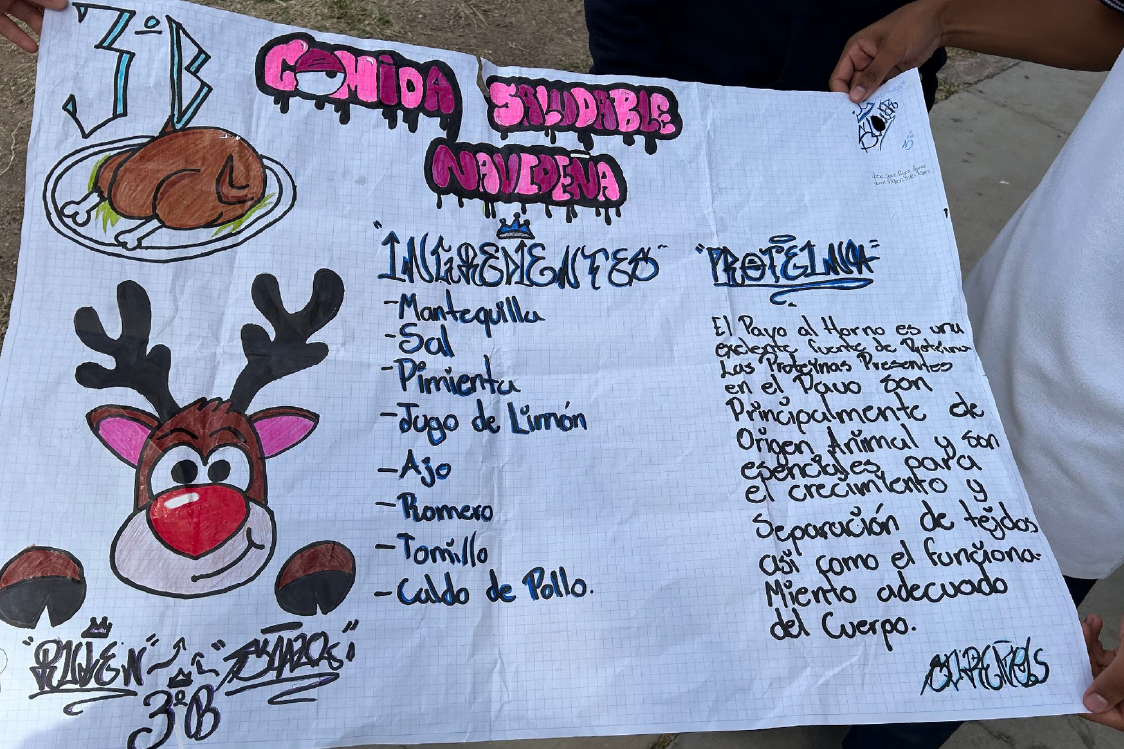 3°B
COMIDA SALUDABLE
NAVIDEÑA
"INGREDIENTES"
-Mantequilla
-Sal
-Pimienta
-Jugo de Limón
-Ajo
-Romero
-Tomillo
-Caldo de Pollo.
"PROTEINA"
El Pavo al Horno es una
exelente fuente de Proteina
Las Proteinas Presentes
en el Pavo son
Principalmente de
Origen Animal y son
esenciales para
el crecimiento y
Separación de tejidos
así como el funciona-
Miento adecuado
del Cuerpo.
3°B